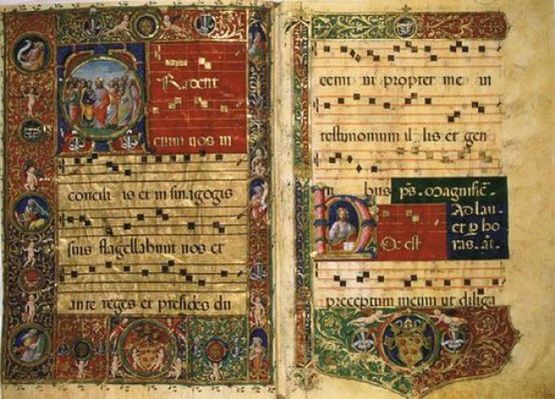 Tradent
enim vos in
concili is et in sinagogis
suis flagellabunt vos et
ante reges et presides du
cemi ni propter me in
testimonium il lis et gen
bus ps. Magnific̄.
Ad lau
et p ho
ras. añ.
Oc est
preceptum meum ut diliga